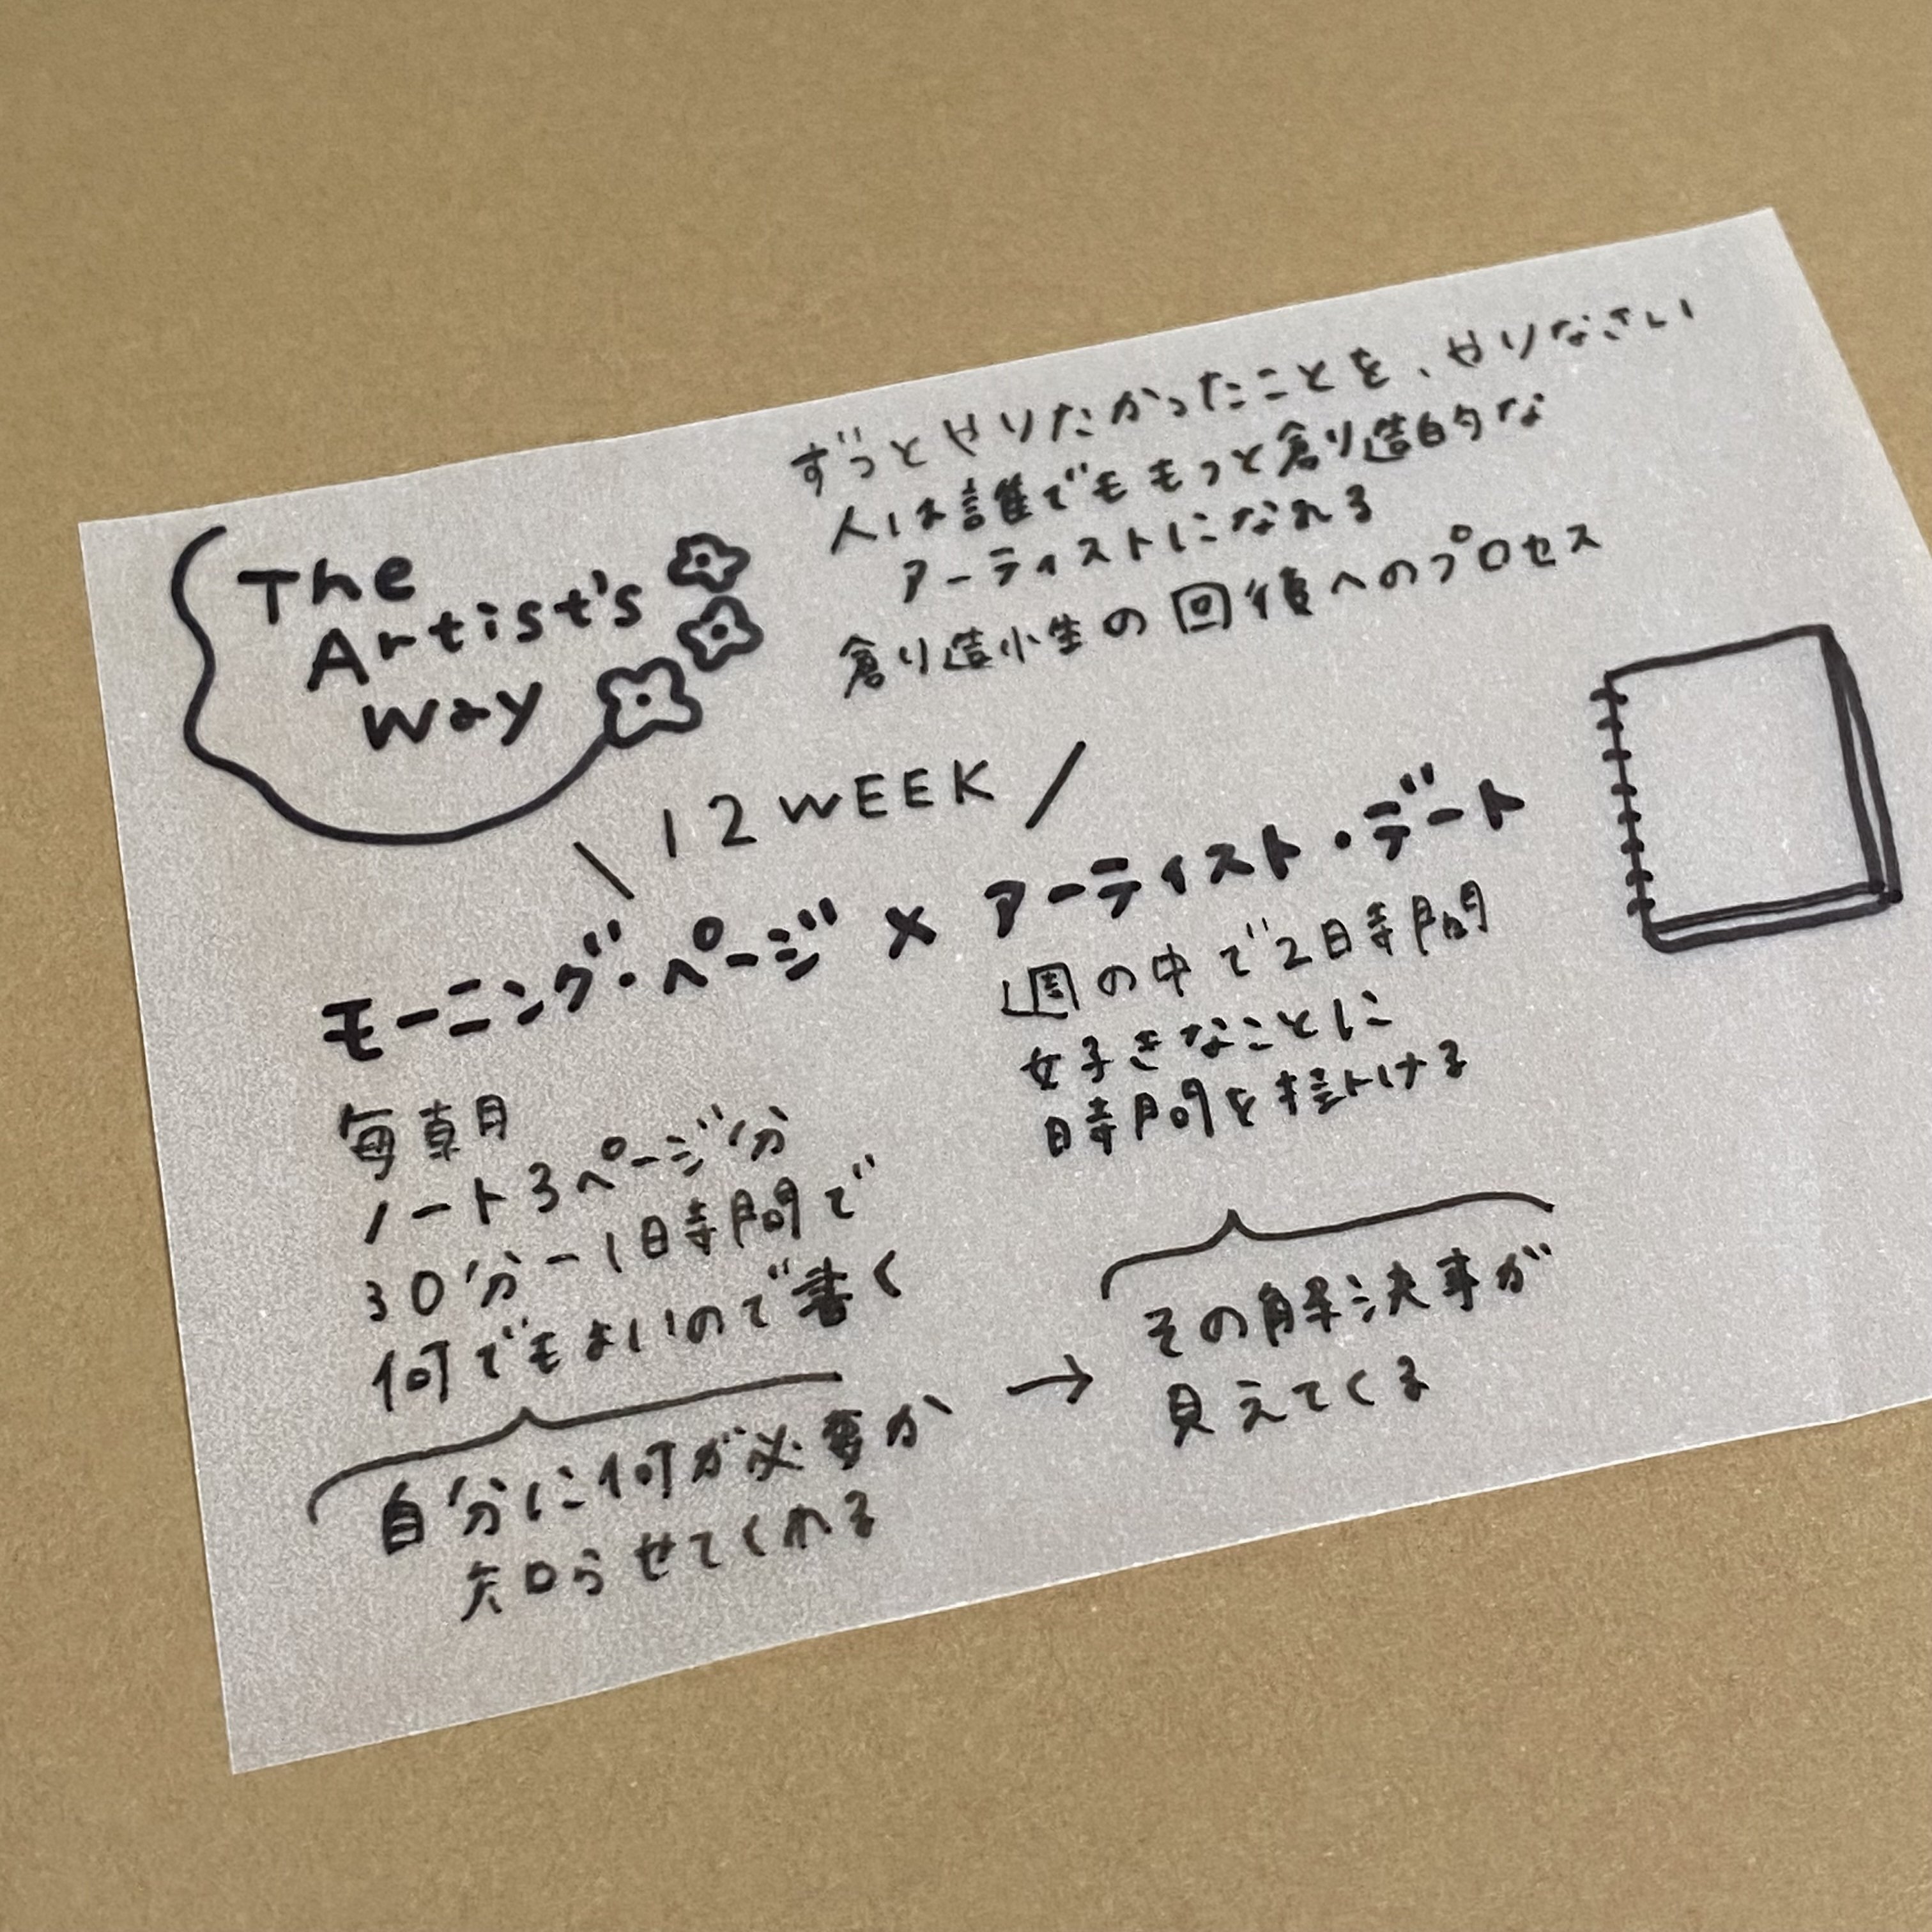 The
Artist's
Way
ずっとやりたかったことを、やりなさい
人は誰でももっと創造的な
アーティストになれる
創造性の回復へのプロセス
\ 12 WEEK /
モーニング・ページ × アーティスト・デート
毎朝
ノート3ページ分
30分-1時間で
何でもよいので書く
自分に何が必要か
知らせてくれる
週の中で2時間
好きなことに
時間を掛ける
→ その解決事が
見えてくる